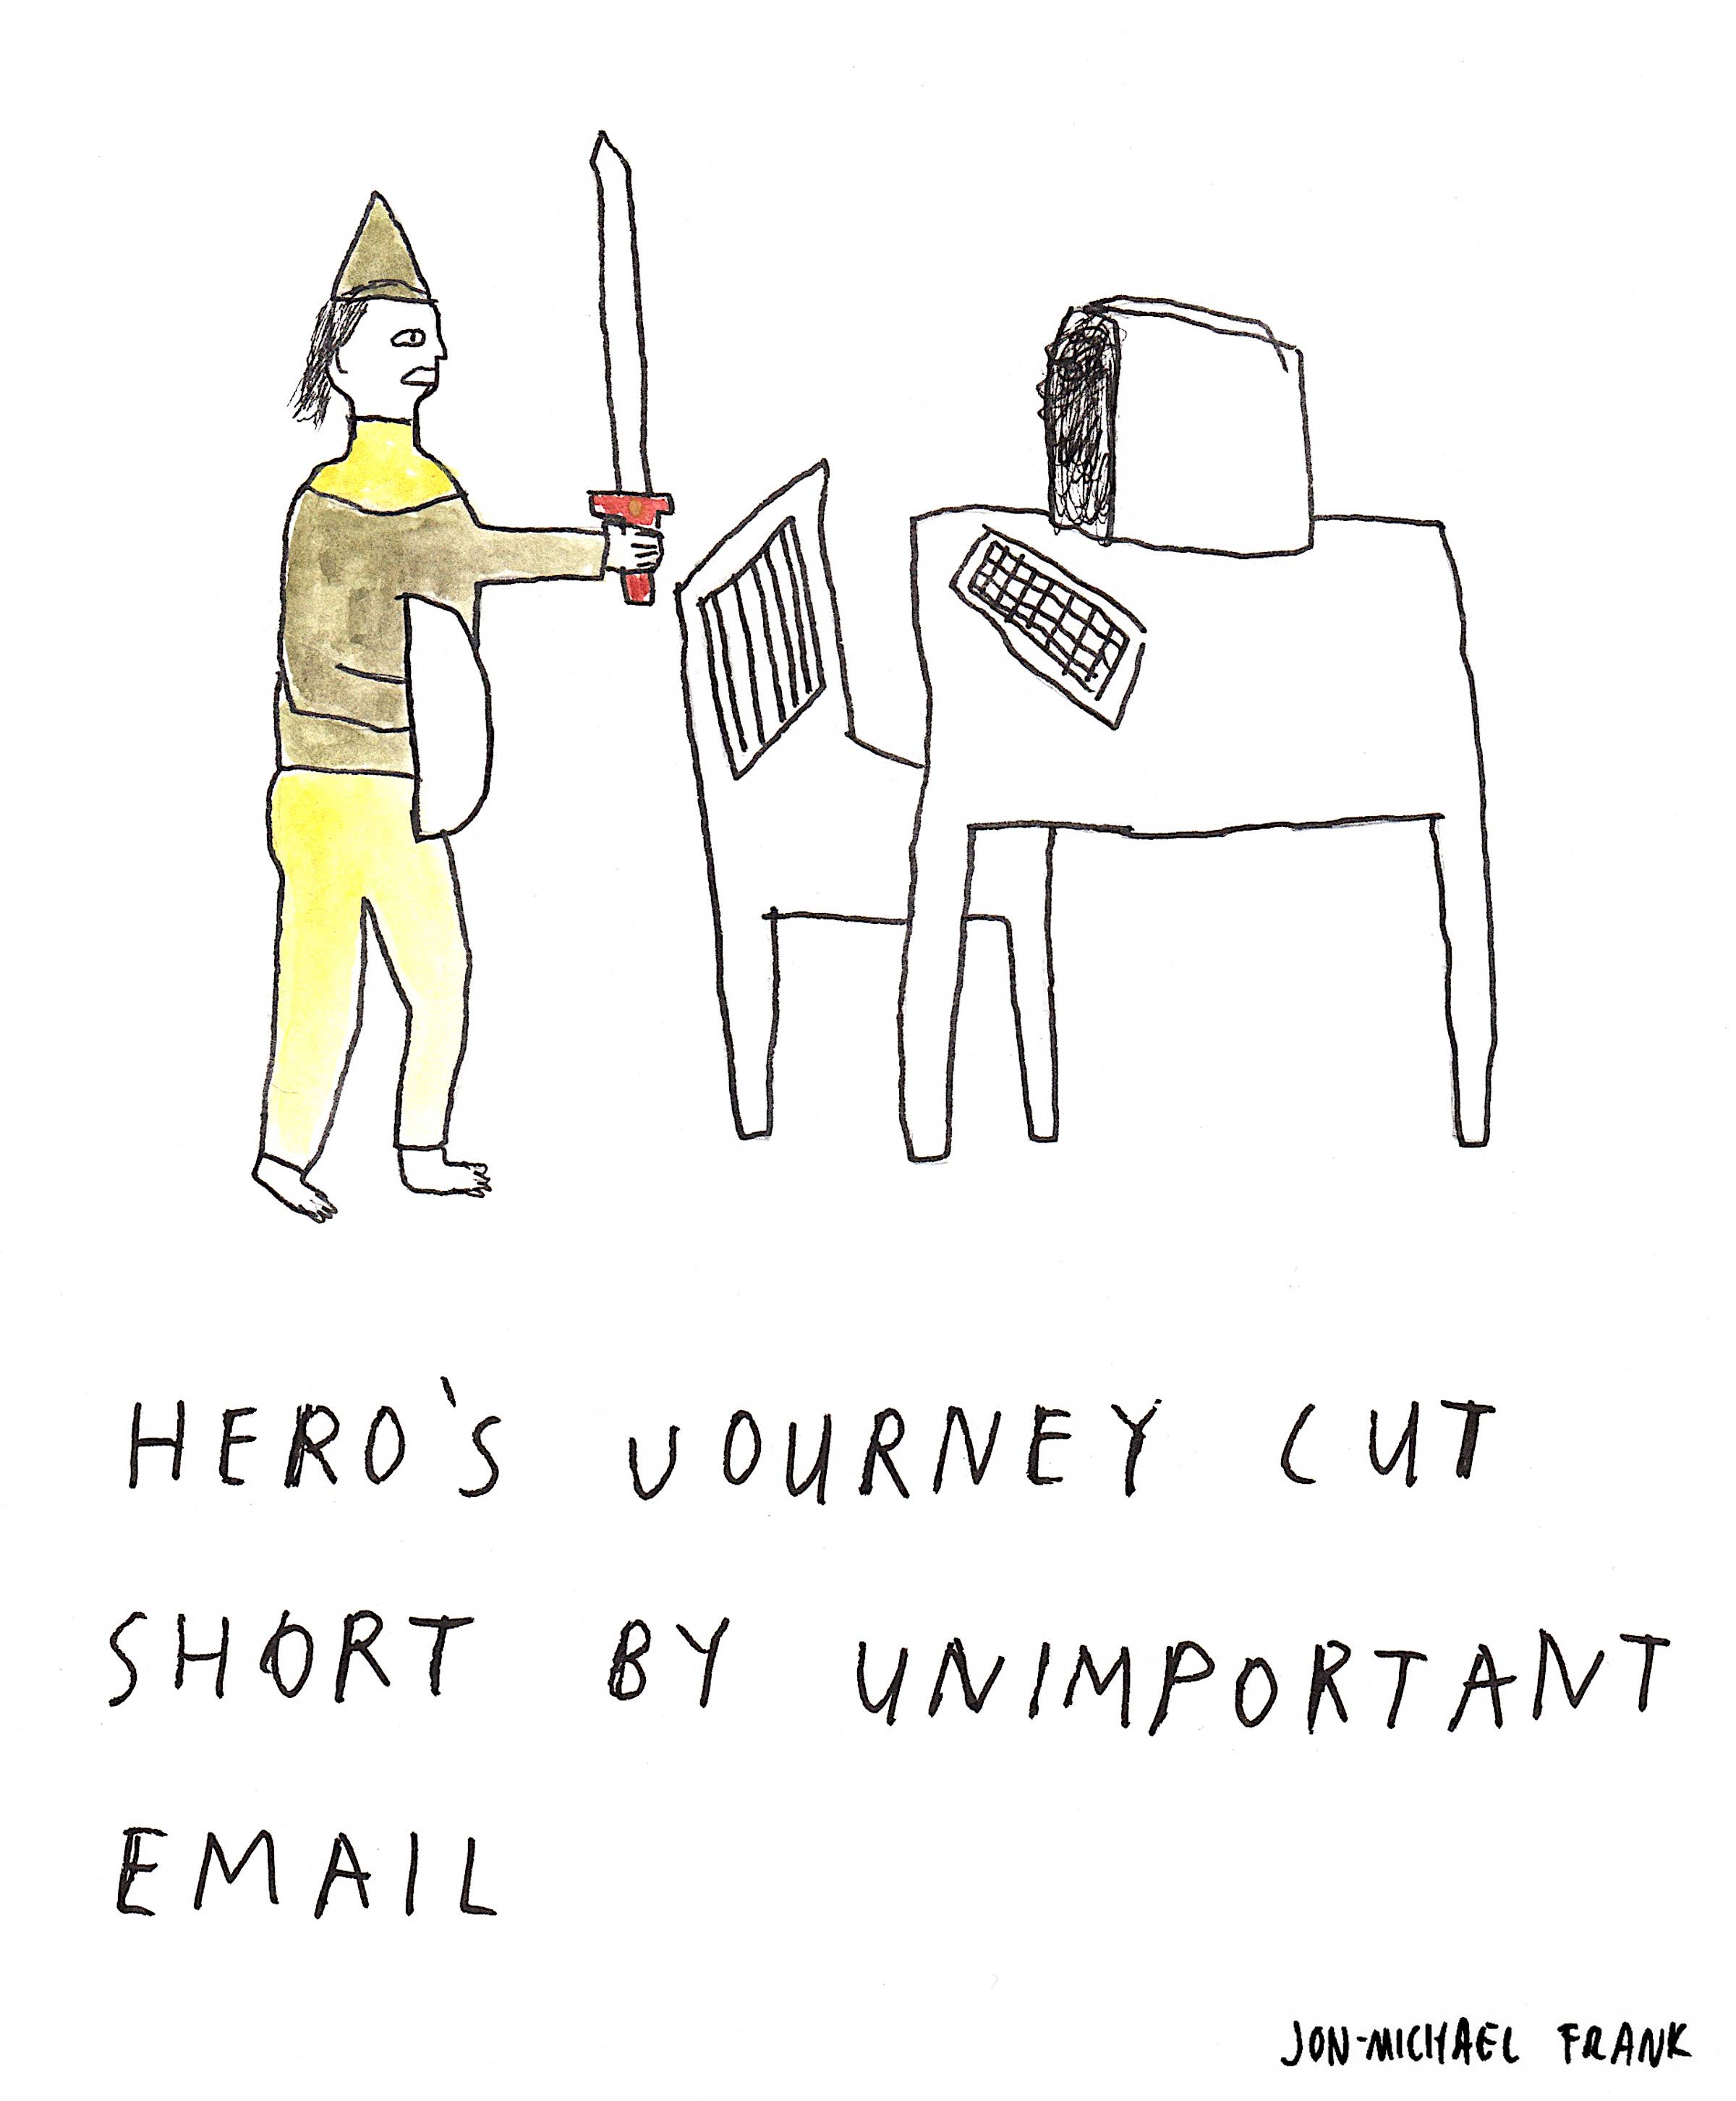 HERO'S JOURNEY CUT
SHORT BY UNIMPORTANT
EMAIL
JON-MICHAEL FRANK